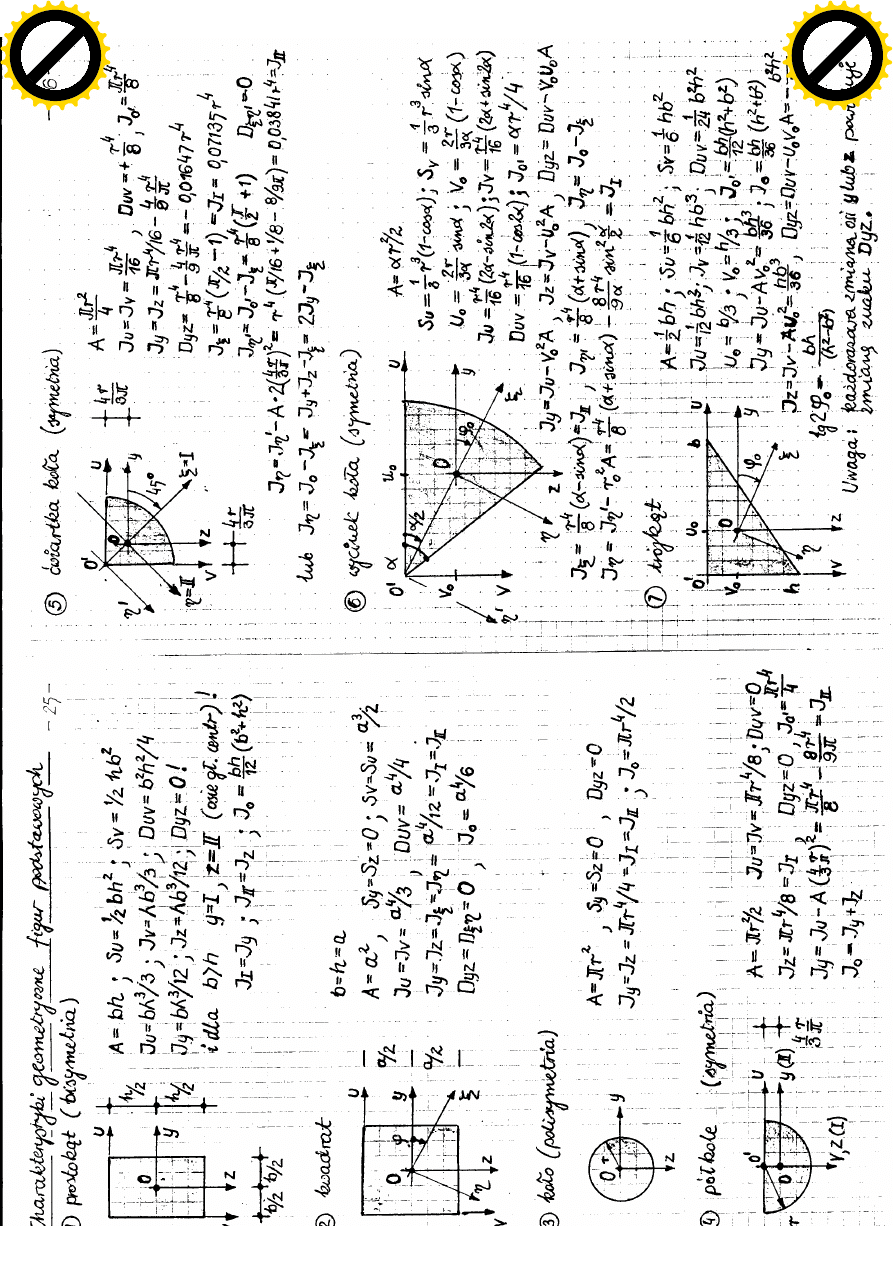 Charakterystyki geometryczne figur podstawowych - 25 -
① prostokąt (bisymetria)
A = bh ; Su = 1/2 bh² ; Sv = 1/2 hb²
Ju = bh³/3 ; Jv = hb³/3 ; Duv = b²h²/4
Jy = bh³/12 ; Jz = hb³/12 ; Dyz = 0!
i dla b>h y=I, z=II (osie gł. centr)!
J_I = Jy ; J_II = Jz ; J₀ = bh/12 (b²+h²)
u
h/2
h/2
O
y
z
b/2 b/2
② kwadrat
b=h=a
A = a² , Sy=Sz=0 ; Sv=Su= a³/2
Ju=Jv= a⁴/3 , Duv = a⁴/4
Jy=Jz=Jξ=Jη= a⁴/12 = J_I = J_II
Dyz = Dξη = 0 , J₀ = a⁴/6
u
a/2
a/2
O
φ
y
ξ
z
η
v
③ koło (polisymetria)
A = πr² , Sy=Sz=0 , Dyz=0
Jy=Jz= πr⁴/4 = J_I = J_II ; J₀ = πr⁴/2
O
r
y
z
④ półkole (symetria)
A = πr²/2 Ju=Jv= πr⁴/8 ; Duv=0
Jz= πr⁴/8 = J_I Dyz=0 , J₀' = πr⁴/4
Jy = Ju - A (4r/3π)² = πr⁴/8 - 8r⁴/9π = J_II
J₀ = Jy + Jz
O'
u
O
y(II)
v,z(I)
r
4r/3π
- 6 -
⑤ ćwiartka koła (symetria)
A = πr²/4
Ju=Jv= πr⁴/16 , Duv = + r⁴/8 , J₀' = πr⁴/8
Jy=Jz= πr⁴/16 - 4r⁴/9π
Dyz = r⁴/8 - 4r⁴/9π = - 0,01647 r⁴
Jξ = r⁴/8 (π/2 - 1) = J_I = 0,07135 r⁴
Jη' = J₀' - Jξ = r⁴/8 (π/2 + 1) Dξη = 0
Jη = Jη' - A·2(4r/3π)² = r⁴(π/16 + 1/8 - 8/9π) = 0,03841 r⁴ = J_II
lub Jη = J₀ - Jξ = Jy + Jz - Jξ = 2Jy - Jξ
O'
u
O
y
45°
ξ=I
z
v
η=II
η'
4r/3π
4r/3π
⑥ wycinek koła (symetria)
A = αr²/2
Su = 1/3 r³(1-cosα) ; Sv = 1/3 r³ sinα
u₀ = 2r/3α sinα ; v₀ = 2r/3α (1-cosα)
Ju = r⁴/16 (2α-sin2α) ; Jv = r⁴/16 (2α+sin2α)
Duv = r⁴/16 (1-cos2α) ; J₀' = αr⁴/4
Jy = Ju - v₀²A , Jz = Jv - u²A , Dyz = Duv - v₀u₀A
Jξ = r⁴/8 (α-sinα) = J_II , Jη' = r⁴/8 (α+sinα) , Jη = J₀ - Jξ
Jη = Jη' - r₀²A = r⁴/8 (α+sinα) - 8r⁴/9α sin² α/2 = J_I
O'
α
α/2
u₀
u
O
y
φ₀
ξ
z
η
v₀
v
η'
⑦ trójkąt
A = 1/2 bh ; Su = 1/6 bh² ; Sv = 1/6 hb²
Ju = 1/12 bh³ ; Jv = 1/12 hb³ ; Duv = 1/24 b²h²
u₀ = b/3 ; v₀ = h/3 ; J₀' = bh/12 (h²+b²)
Jy = Ju - Av₀² = bh³/36 ; J₀ = bh/36 (h²+b²)
Jz = Jv - Au₀² = hb³/36 , Dyz = Duv - u₀v₀A = - b²h²
tg2φ₀ = bh/(h²-b²)
O'
u₀
b
u
v₀
O
y
φ₀
ξ
h
η
z
v
Uwaga: każdorazowa zmiana osi y lub z powoduje
zmianę znaku Dyz.